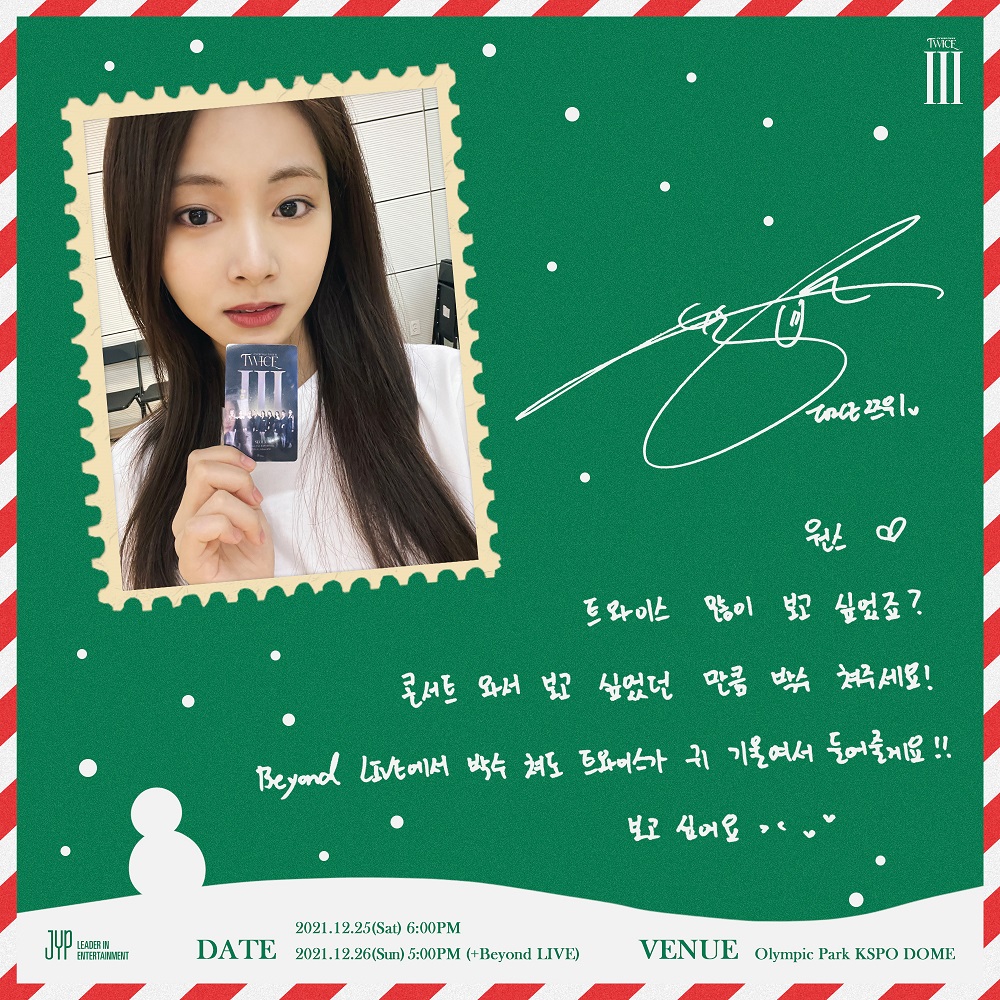 TWICE
III
TWICE
III
TWICE 쯔위
원스 ♡
트와이스 많이 보고 싶었죠?
콘서트 와서 보고 싶었던 만큼 박수 쳐주세요!
Beyond LIVE에서 박수 쳐도 트와이스가 귀 기울여서 들어줄게요!!
보고 싶어요 > <
JYP LEADER IN ENTERTAINMENT
DATE
2021.12.25(Sat) 6:00PM
2021.12.26(Sun) 5:00PM (+Beyond LIVE)
VENUE Olympic Park KSPO DOME